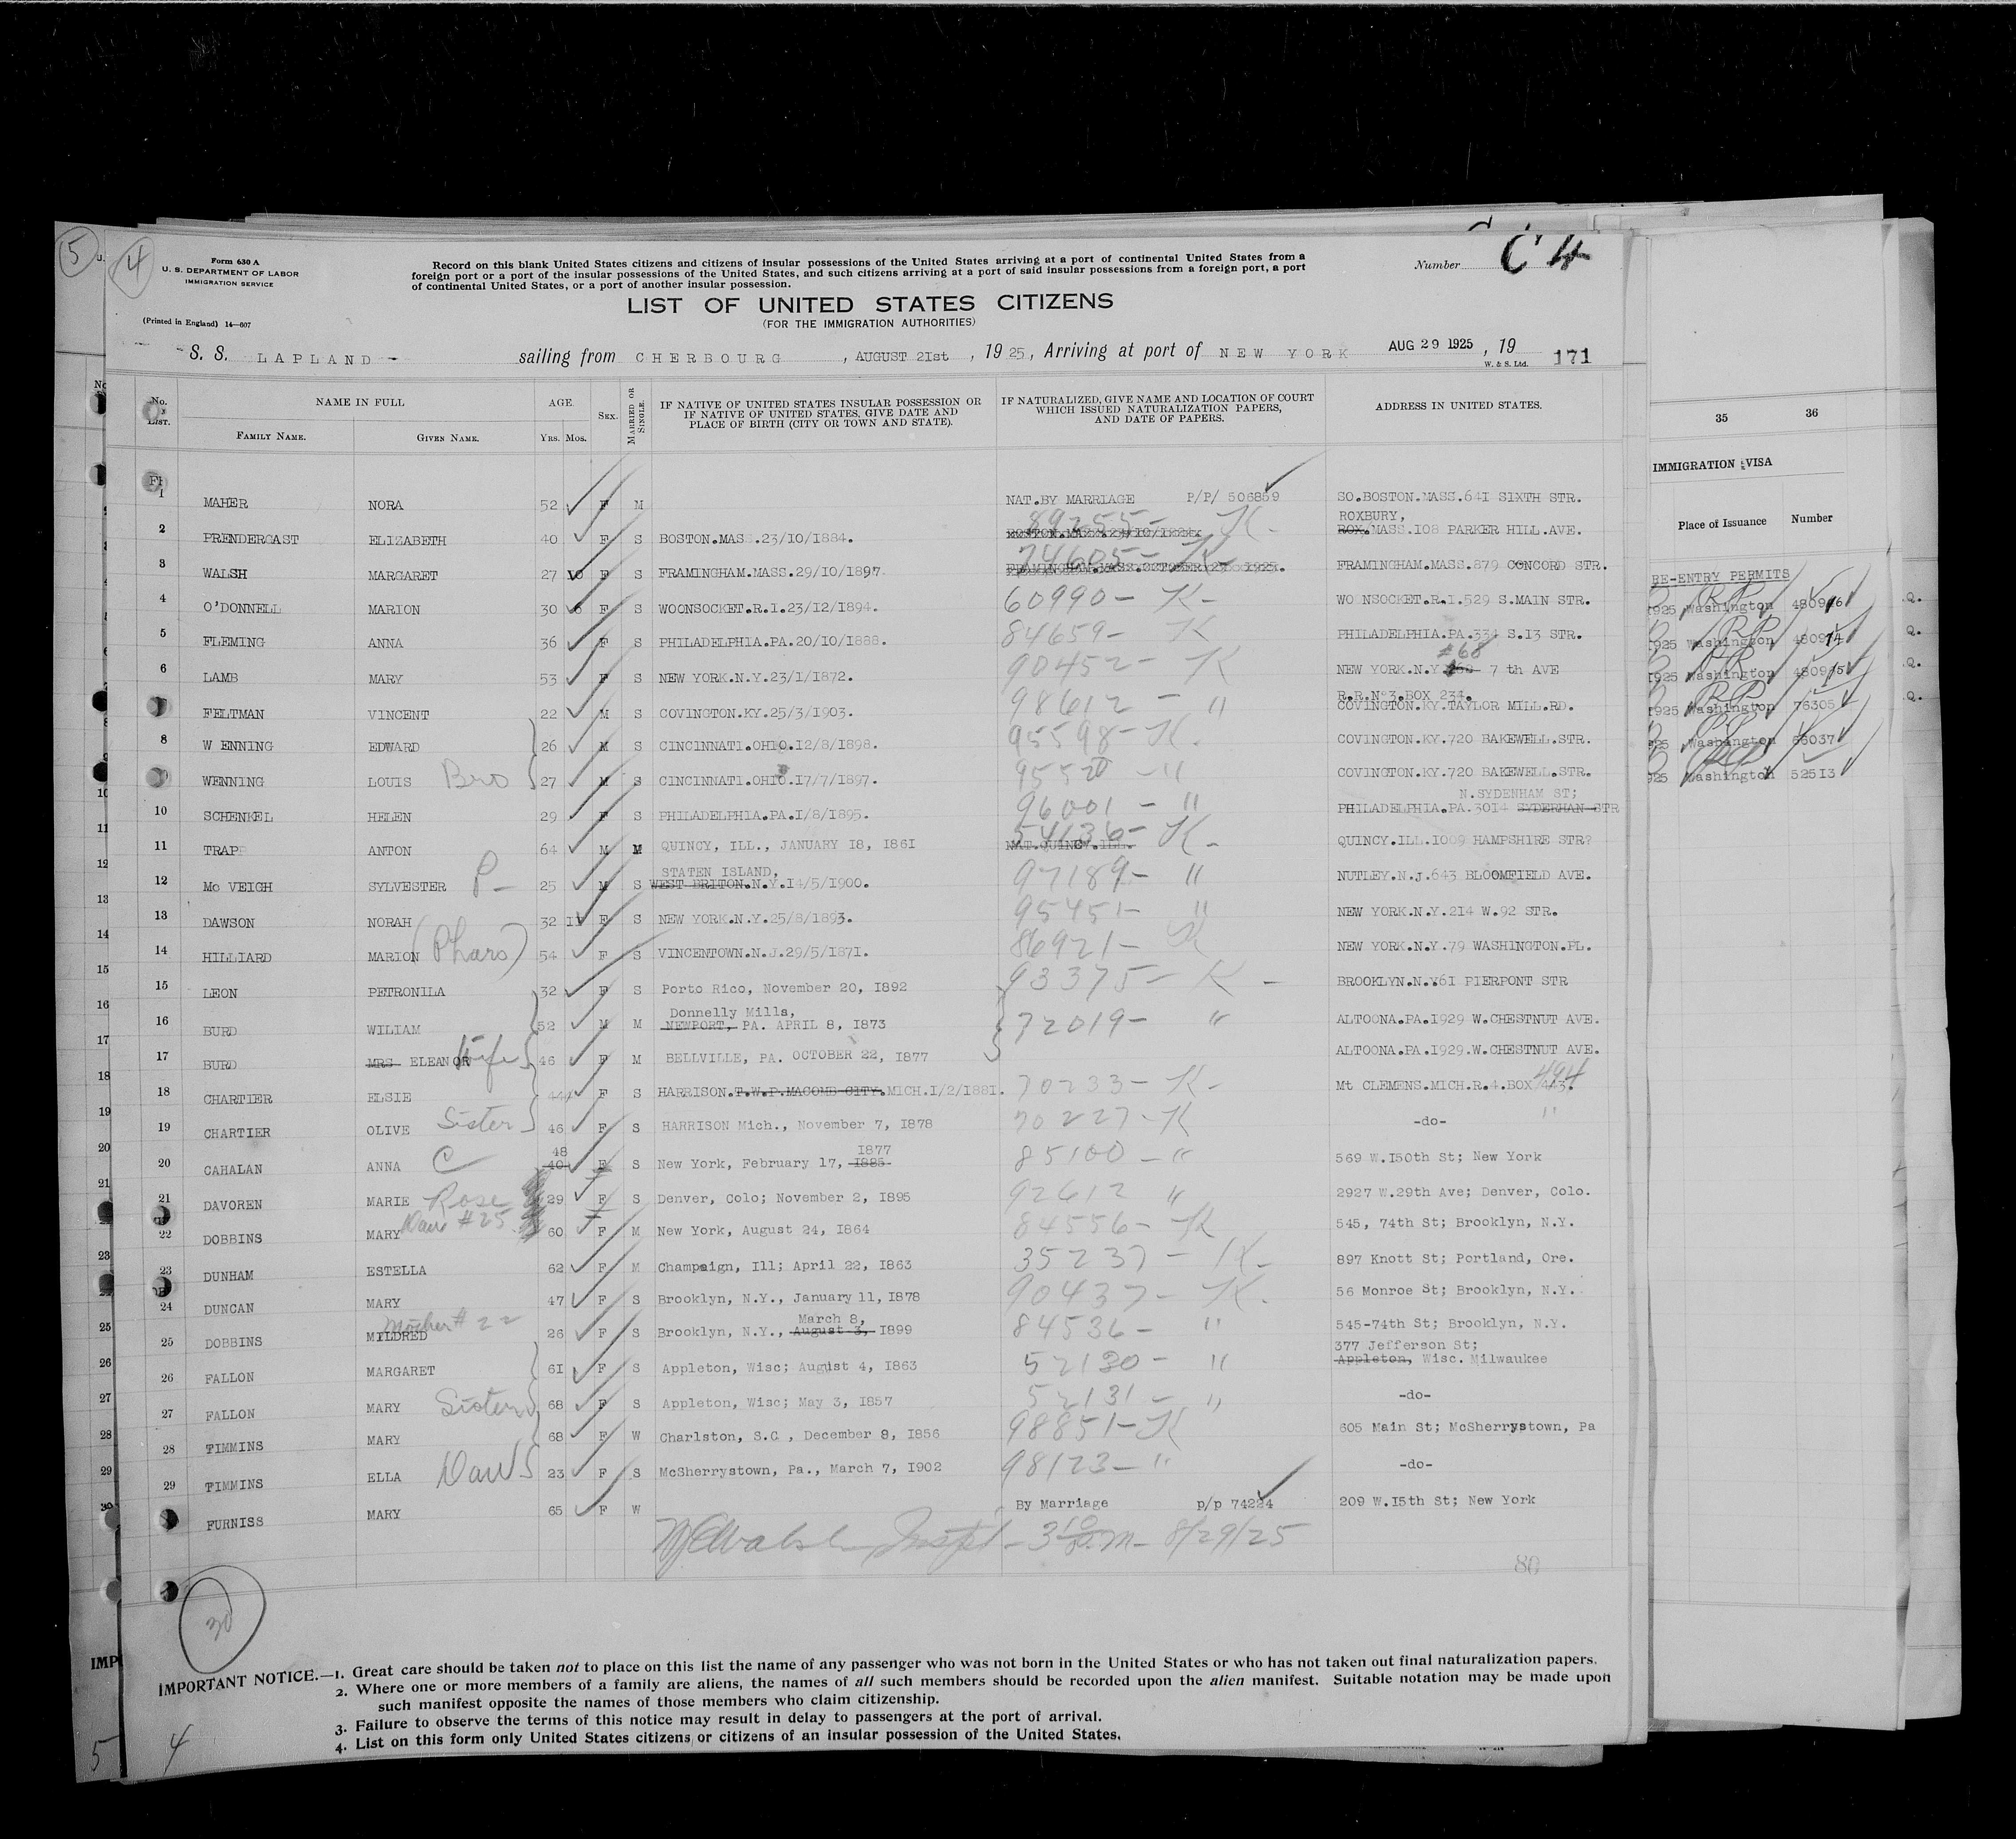 5
4
Form 630 A
U. S. DEPARTMENT OF LABOR
IMMIGRATION SERVICE
(Printed in England) 14—607
Record on this blank United States citizens and citizens of insular possessions of the United States arriving at a port of continental United States from a
foreign port or a port of the insular possessions of the United States, and such citizens arriving at a port of said insular possessions from a foreign port, a port
of continental United States, or a port of another insular possession.
Number C 4
LIST OF UNITED STATES CITIZENS
(FOR THE IMMIGRATION AUTHORITIES)
S. S. LAPLAND - sailing from CHERBOURG, AUGUST 21st, 1925, Arriving at port of NEW YORK AUG 29 1925, 19
W. & S. Ltd. 171
No. LIST. NAME IN FULL AGE. SEX. MARRIED OR SINGLE. IF NATIVE OF UNITED STATES INSULAR POSSESSION OR IF NATIVE OF UNITED STATES, GIVE DATE AND PLACE OF BIRTH (CITY OR TOWN AND STATE). IF NATURALIZED, GIVE NAME AND LOCATION OF COURT WHICH ISSUED NATURALIZATION PAPERS, AND DATE OF PAPERS. ADDRESS IN UNITED STATES.
FAMILY NAME. GIVEN NAME. YRS. MOS.
1 MAHER NORA 52 F M NAT.BY MARRIAGE P/P/ 506869 SO.BOSTON.MASS.641 SIXTH STR.
2 PRENDERGAST ELIZABETH 40 F S BOSTON.MAS .23/10/1884. 89255- K- ROXBURY, ROX.MASS.108 PARKER HILL.AVE.
3 WALSH MARGARET 27 10 F S FRAMINGHAM.MASS.29/10/1897. 74605- K- FRAMINGHAM.MASS.879 CONCORD STR.
4 O'DONNELL MARION 30 F S WOONSOCKET.R.I.23/12/1894. 60990- K- WO NSOCKET.R.I.529 S.MAIN STR.
5 FLEMING ANNA 36 F S PHILADELPHIA.PA.20/10/1888. 84659- K PHILADELPHIA.PA.334 S.13 STR.
6 LAMB MARY 53 F S NEW YORK.N.Y.23/1/1872. 90452- K #68 NEW YORK.N.Y. 7 th AVE
FELTMAN VINCENT 22 M S COVINGTON.KY.25/3/1903. 98612 - " R.R.N°3.BOX 234. COVINGTON.KY.TAYLOR MILL.RD.
8 W ENNING EDWARD 26 M S CINCINNATI.OHIO.12/8/1898. 95598-K. COVINGTON.KY.720 BAKEWELL.STR.
WENNING LOUIS Bro 27 M S CINCINNATI.OHIO.17/7/1897. 95520 -" COVINGTON.KY.720 BAKEWELL.STR.
10 SCHENKEL HELEN 29 F S PHILADELPHIA.PA.1/8/1895. 96001 - " N.SYDENHAM ST; PHILADELPHIA.PA.3014 SYDERHAN STR
11 TRAPP ANTON 64 M M QUINCY, ILL., JANUARY 18, 1861 54136- K- NAT.QUINCY.ILL. QUINCY.ILL.1009 HAMPSHIRE STR?
12 Mc VEIGH SYLVESTER P- 25 M S STATEN ISLAND, WEST BRITON.N.Y.14/5/1900. 97189- " NUTLEY.N.J.643 BLOOMFIELD AVE.
13 DAWSON NORAH 32 11 F S NEW YORK.N.Y.25/8/1893. 95451- " NEW YORK.N.Y.214 W.92 STR.
14 HILLIARD MARION (Phars) 54 F S VINCENTOWN.N.J.29/5/1871. 86921- K NEW YORK.N.Y.79 WASHINGTON.PL.
15 LEON PETRONILA 32 F S Porto Rico, November 20, 1892 93375- K - BROOKLYN.N.Y61 PIERPONT STR
16 BURD WILIAM 52 M M Donnelly Mills, NEWPORT, PA. APRIL 8, 1873 72019- " ALTOONA.PA.1929 W.CHESTNUT AVE.
17 BURD MRS ELEANOR Wife 46 F M BELLVILLE, PA. OCTOBER 22, 1877 ALTOONA.PA.1929.W.CHESTNUT AVE.
18 CHARTIER ELSIE 44 F S HARRISON.T.W.P.MACOMB CITY.MICH.1/2/1881. 70233- K- Mt CLEMENS.MICH.R.4.BOX 494
19 CHARTIER OLIVE Sister 46 F S HARRISON Mich., November 7, 1878 70227-K -do- "
20 CAHALAN ANNA C 48 40 F S New York, February 17, 1877 1885 85100 - " 569 W.150th St; New York
21 DAVOREN MARIE Rose 29 F S Denver, Colo; November 2, 1895 92612 " 2927 W.29th Ave; Denver, Colo.
22 DOBBINS MARY Dau #25 60 F M New York, August 24, 1864 84556- K 545, 74th St; Brooklyn, N.Y.
23 DUNHAM ESTELLA 62 F M Champaign, Ill; April 22, 1863 35237- K- 897 Knott St; Portland, Ore.
24 DUNCAN MARY 47 F S Brooklyn, N.Y., January 11, 1878 90437- K. 56 Monroe St; Brooklyn, N.Y.
25 DOBBINS MILDRED Mother #22 26 F S Brooklyn, N.Y., March 8, August 3, 1899 84536- " 545-74th St; Brooklyn, N.Y.
26 FALLON MARGARET 61 F S Appleton, Wisc; August 4, 1863 52130- " 377 Jefferson St; Appleton, Wisc. Milwaukee
27 FALLON MARY Sister 68 F S Appleton, Wisc; May 3, 1857 52131- " -do-
28 TIMMINS MARY 68 F W Charlston, S.C , December 8, 1856 98851-K 605 Main St; McSherrystown, Pa
29 TIMMINS ELLA Dau 23 F S McSherrystown, Pa., March 7, 1902 98123- " -do-
FURNISS MARY 65 F W By Marriage p/p 74224 209 W.15th St; New York
8/29/25
80
30
IMPORTANT NOTICE.—1. Great care should be taken not to place on this list the name of any passenger who was not born in the United States or who has not taken out final naturalization papers.
2. Where one or more members of a family are aliens, the names of all such members should be recorded upon the alien manifest. Suitable notation may be made upon
such manifest opposite the names of those members who claim citizenship.
3. Failure to observe the terms of this notice may result in delay to passengers at the port of arrival.
4. List on this form only United States citizens or citizens of an insular possession of the United States.
5
4
35 36
IMMIGRATION VISA
Place of Issuance Number
RE-ENTRY PERMITS
1925 Washington
1925 Washington
1925 Washington
1925 Washington 76305
Washington 56037
925 Washington 52513